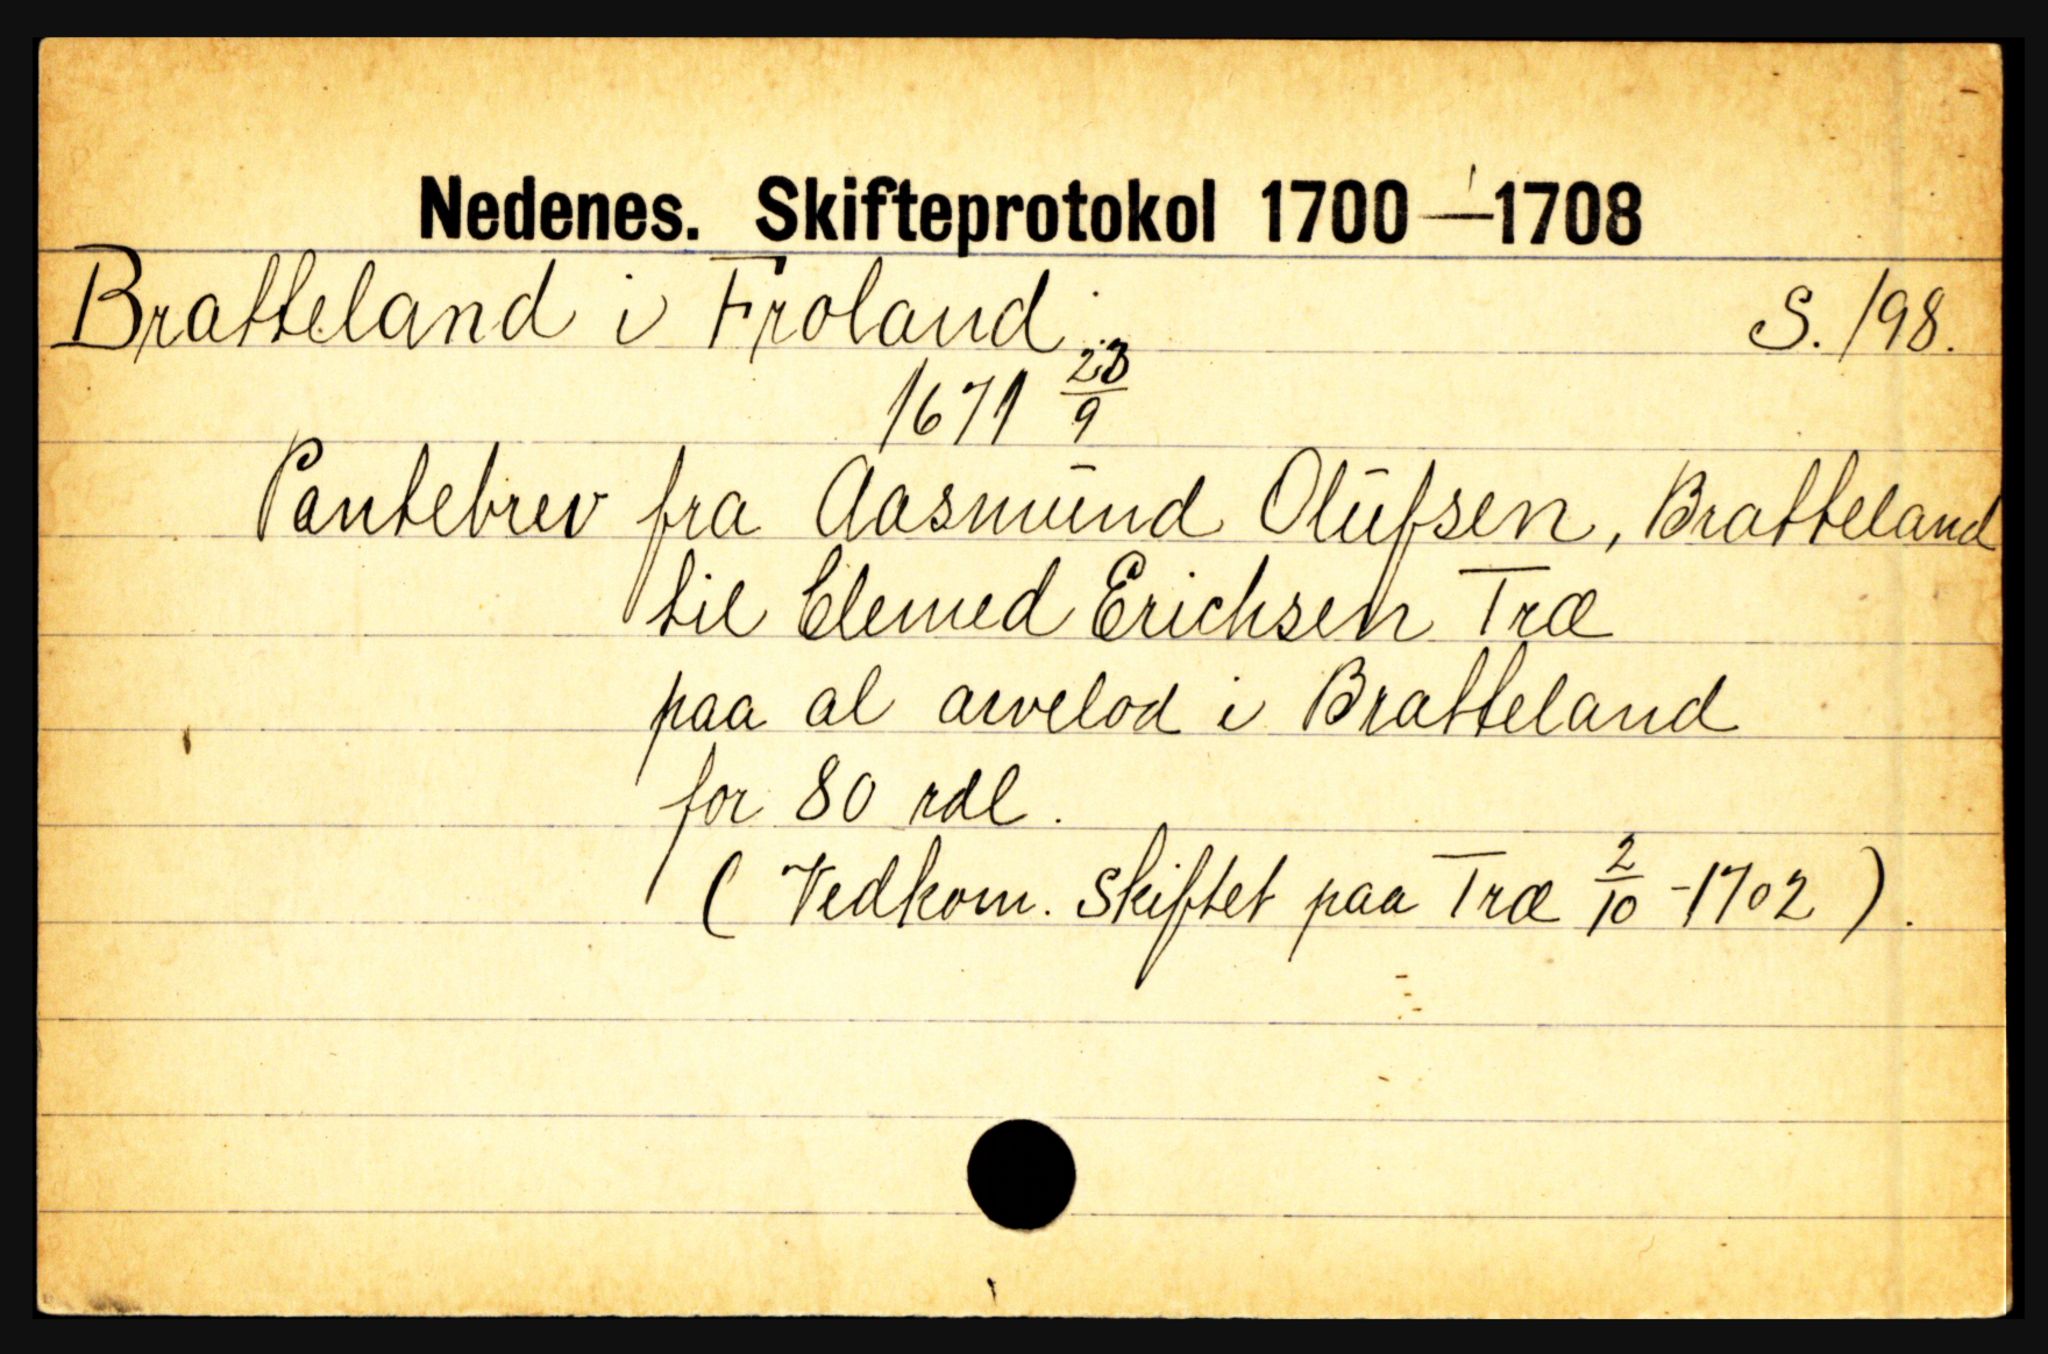 Nedenes. Skifteprotokol 1700—1708
Bratteland i Froland. S. 198.
1671 23/9
Pantebrev fra Aasmund Olufsen, Bratteland
til Clemed Erichsen Træ
paa al arvelod i Bratteland
for 80 rdl.
( Vedkom. Skiftet paa Træ 2/10 - 1702 ).